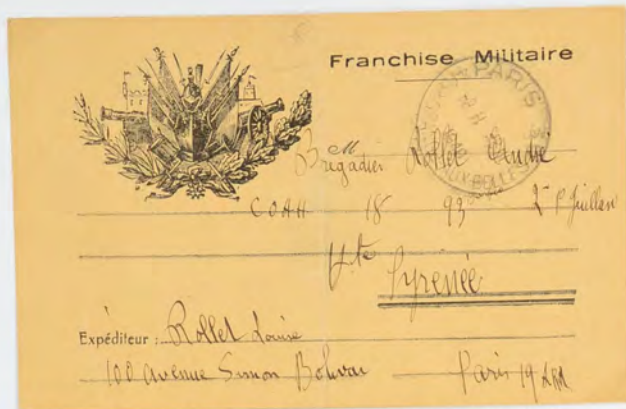 Franchise Militaire
PARIS
Brigadier Rollet André
COAH 18 93 2e P Juillan
Hte
Pyrenée
Expéditeur : Rollet Louise
100 avenue Simon Bolivar Paris 19